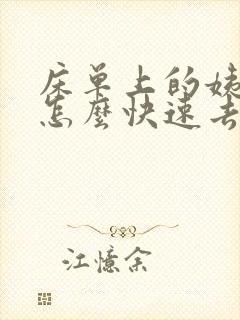 床单上的姨
怎麼快速去
江憶余